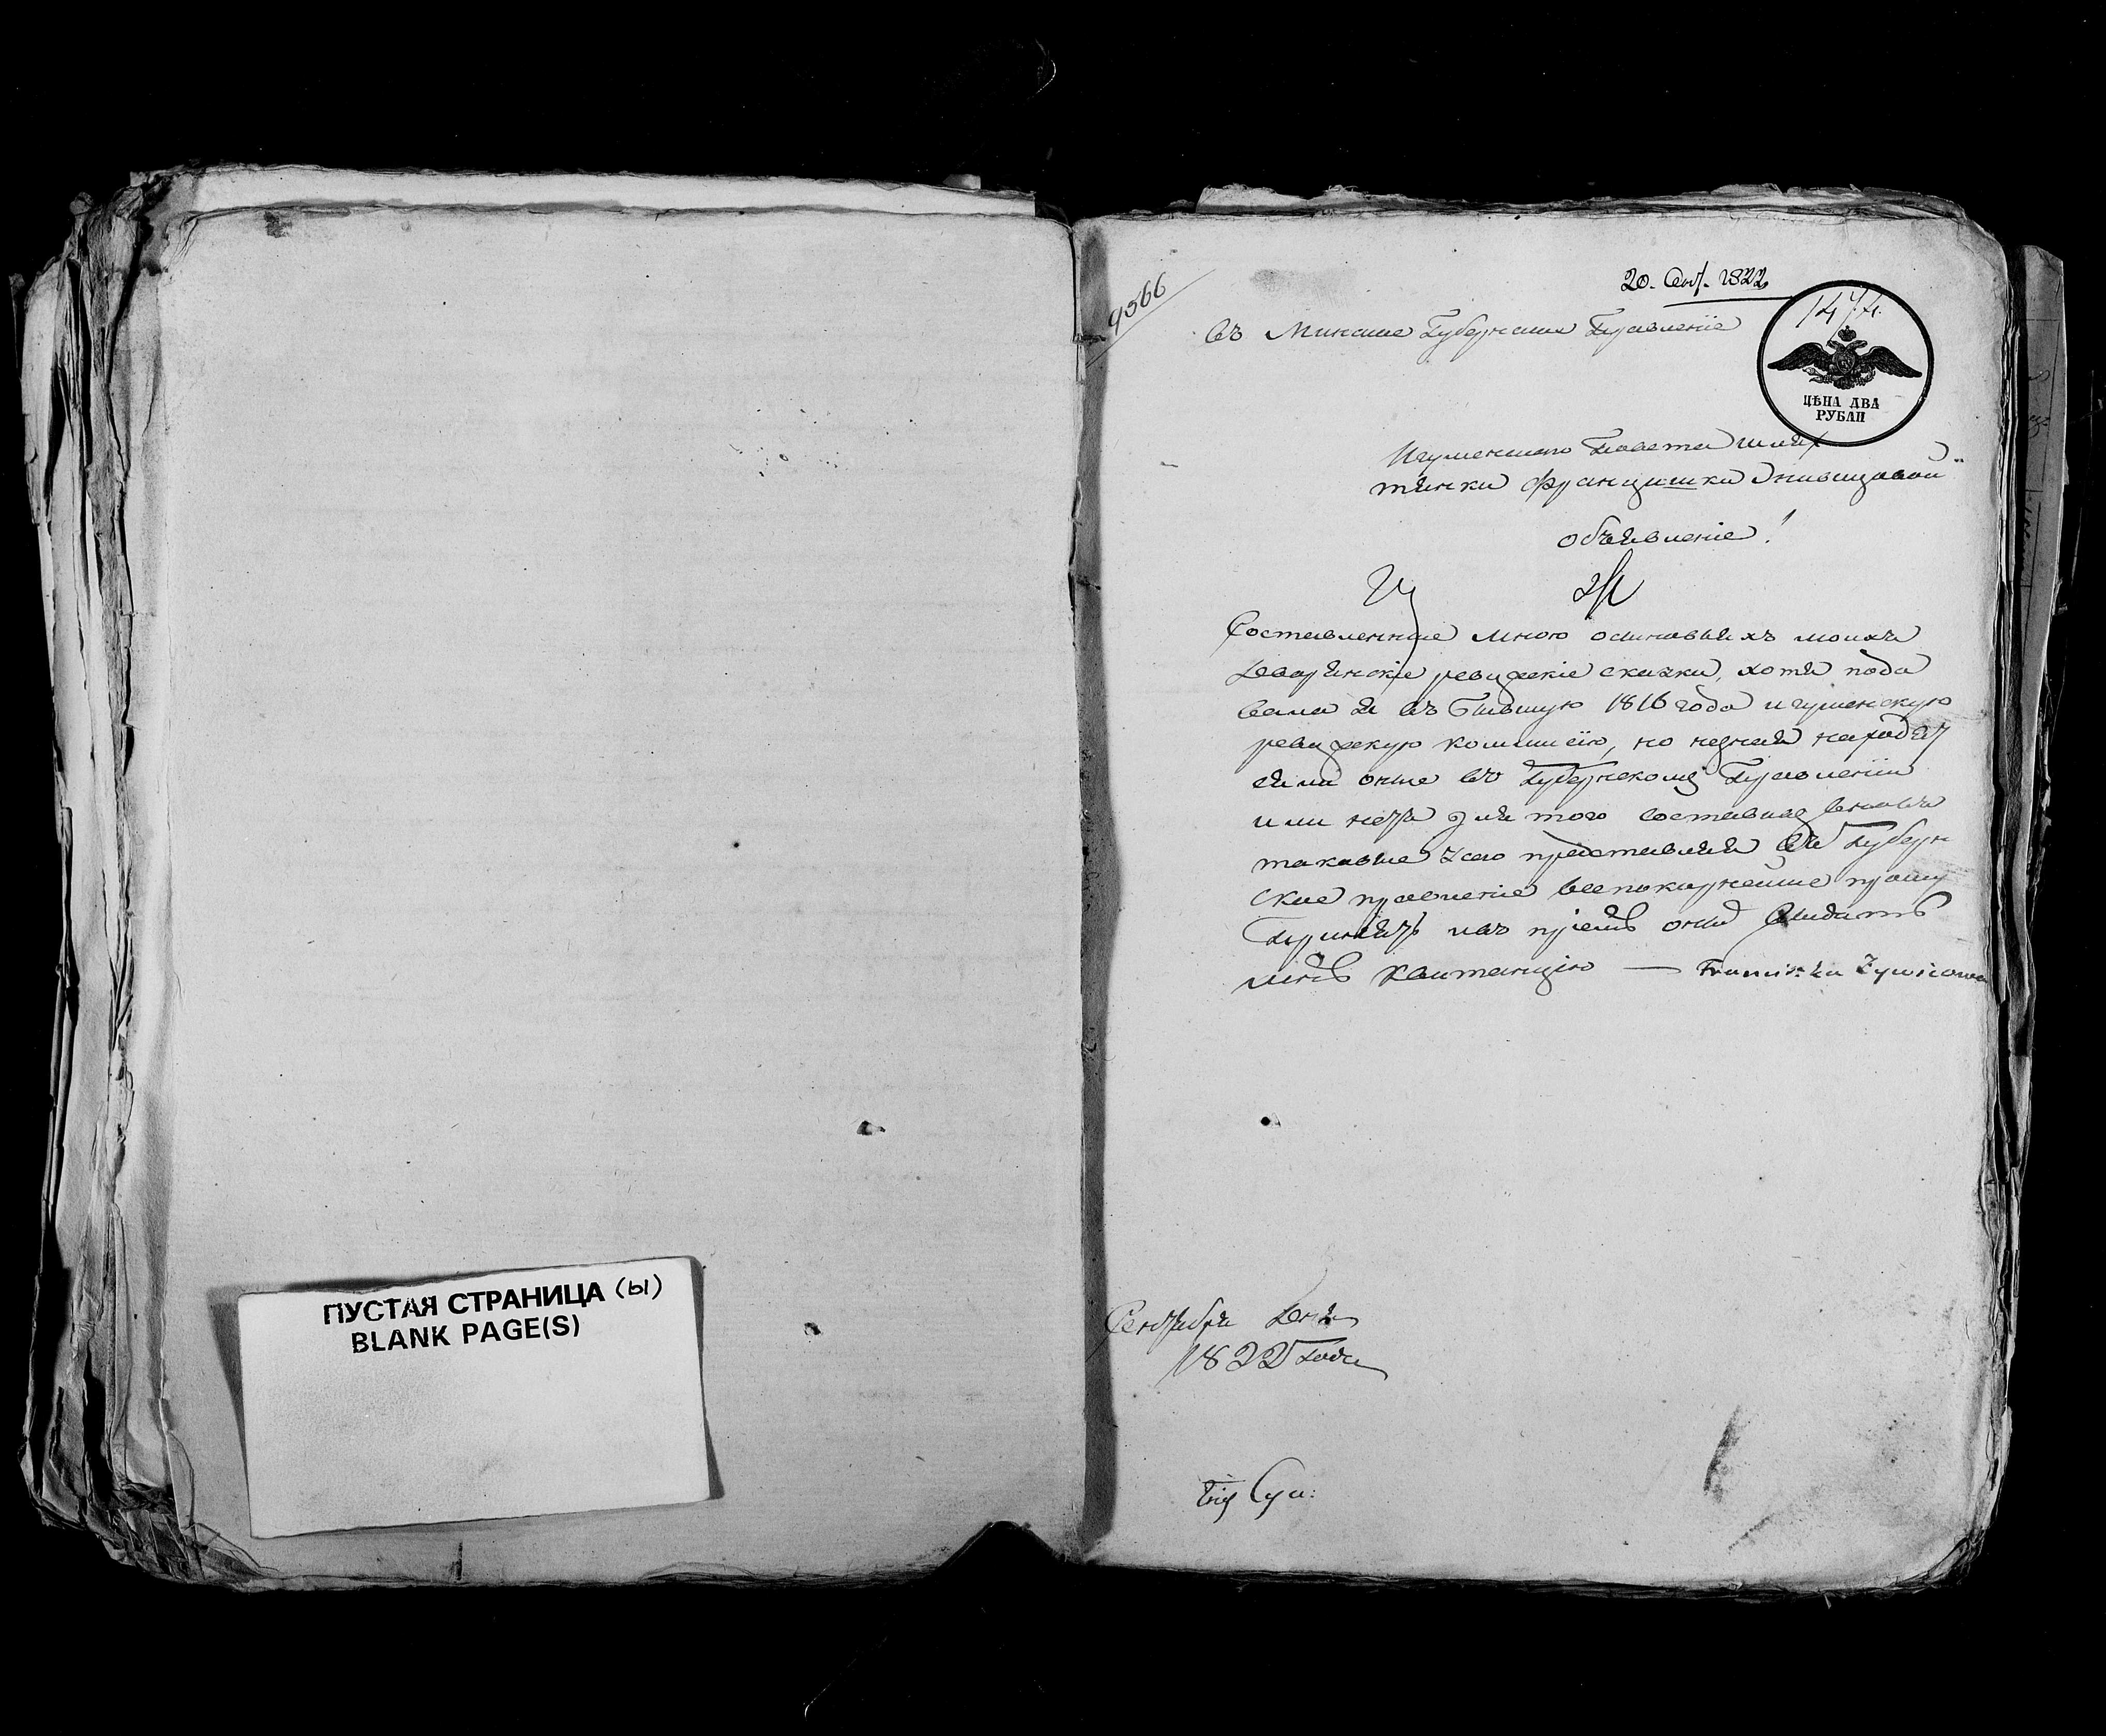 ПУСТАЯ СТРАНИЦА (ы)
BLANK PAGE(S)
9566
20. Сент. 1822
147
ЦѢНА ДВА
РУБЛИ
Въ Минское Губернское Правленіе
Игуменского Повета шлях
тянки Францишки Живицовой
объявленіе!
Составленные мною о
моихъ
дворянскіе ревизскіе сказки, хотя пода
вала я въ бывшую 1816 года игуменскую
ревизскую коммисію, но незная находят
сяли оные въ Губернскомъ Правленіи
или нетъ для того составив вновь
таковые представляя въ Губерн
ское правленіе всепокорнейше прошу
Принять и въ пріеме оных выдать
мне Квитанцію — Franciszka Żywicowa
Сентября дня
1822 Года